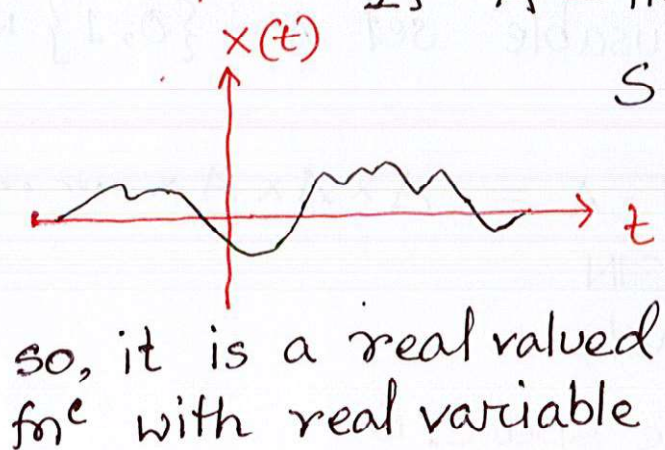 x(t)
S
t
so, it is a real valued
fnᶜ with real variable